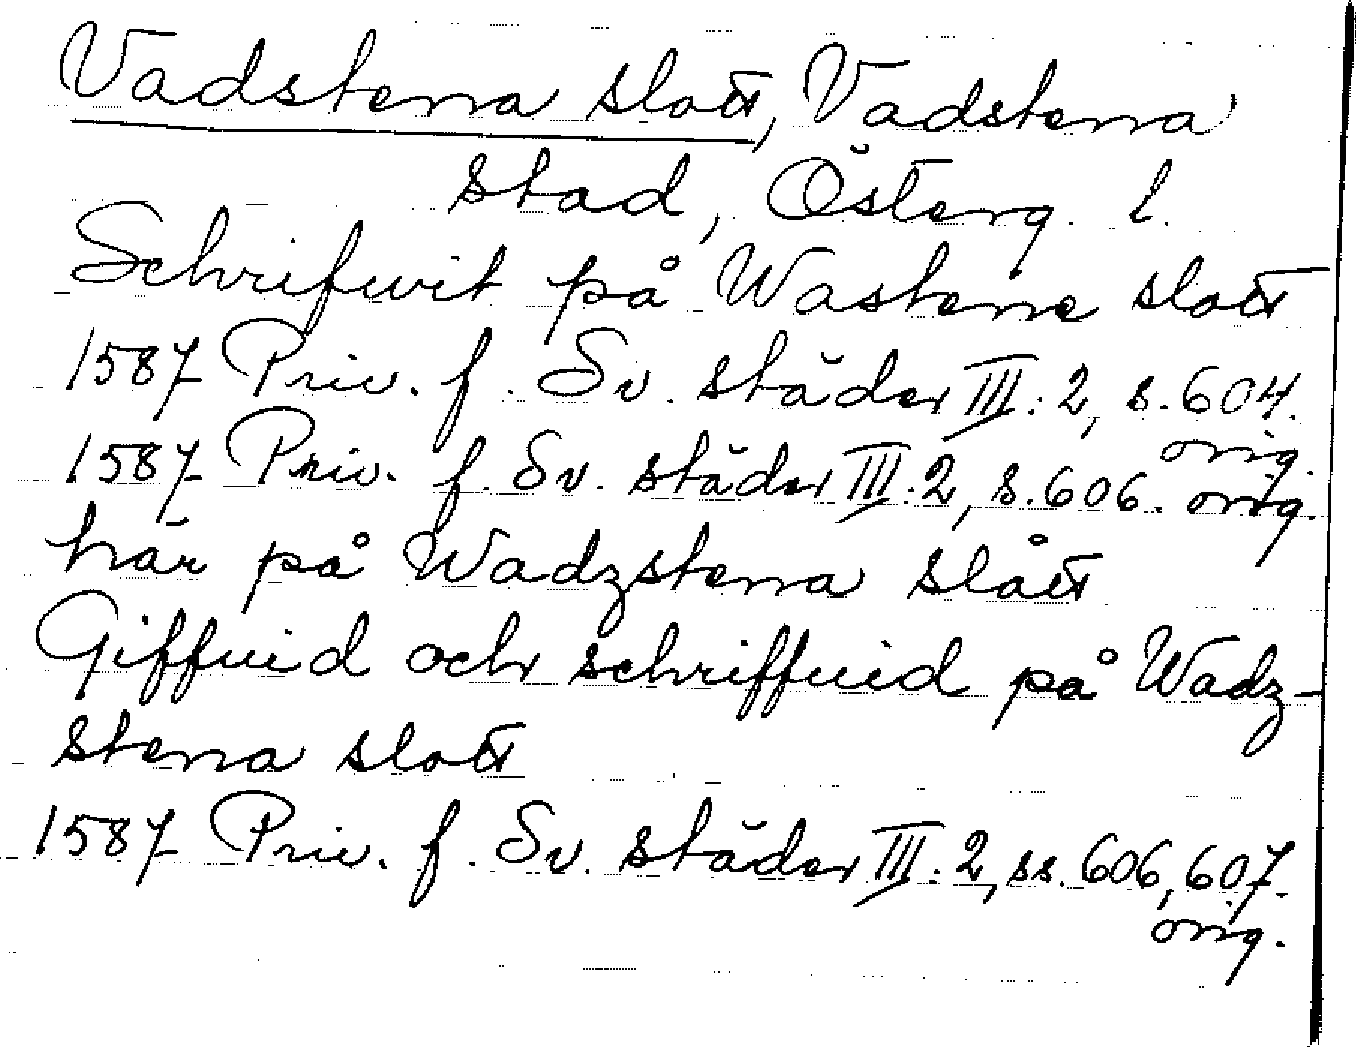 Vadstena slott, Vadstena
stad, Österg. l.
Schrifwit på Wastene slott
1587 Priv. f. Sv. städer III:2, s. 604.
orig.
1587 Priv. f. Sv. städer III:2, s. 606. orig.
här på Wadzstena slått
Giffuid och schriffuid på Wadz-
stena slott
1587 Priv. f. Sv. städer III:2, ss. 606, 607.
orig.